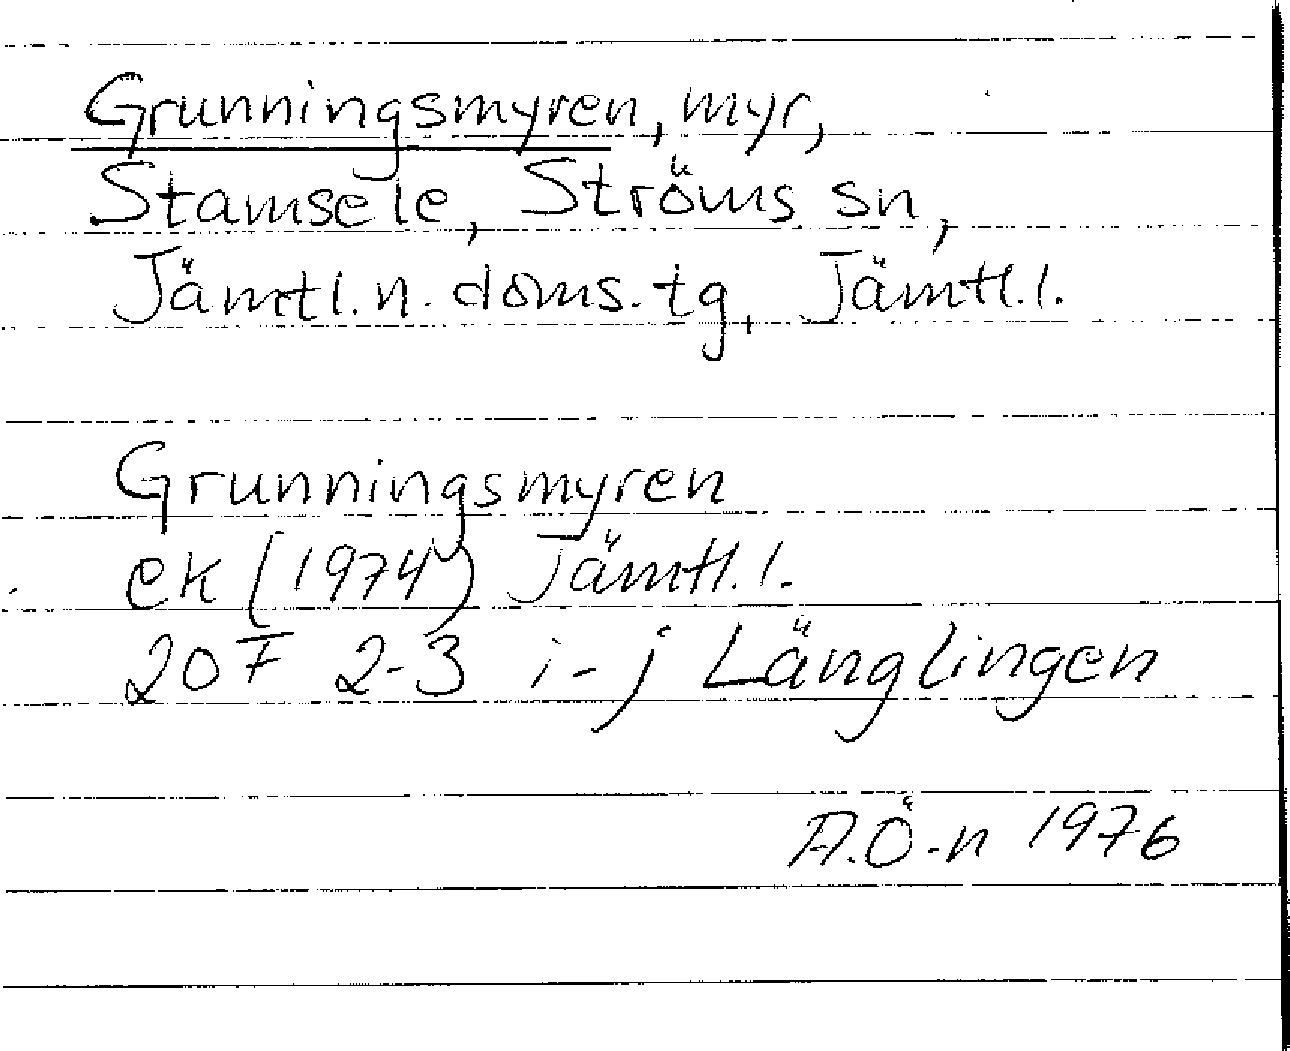 Grunningsmyren, myr,
Stamsele, Ströms sn,
Jämtl.n. doms.tg, Jämtl.l.
Grunningsmyren
ek (1974) Jämtl.l.
20F 2-3 i-j Länglingen
A.Ö-n 1976